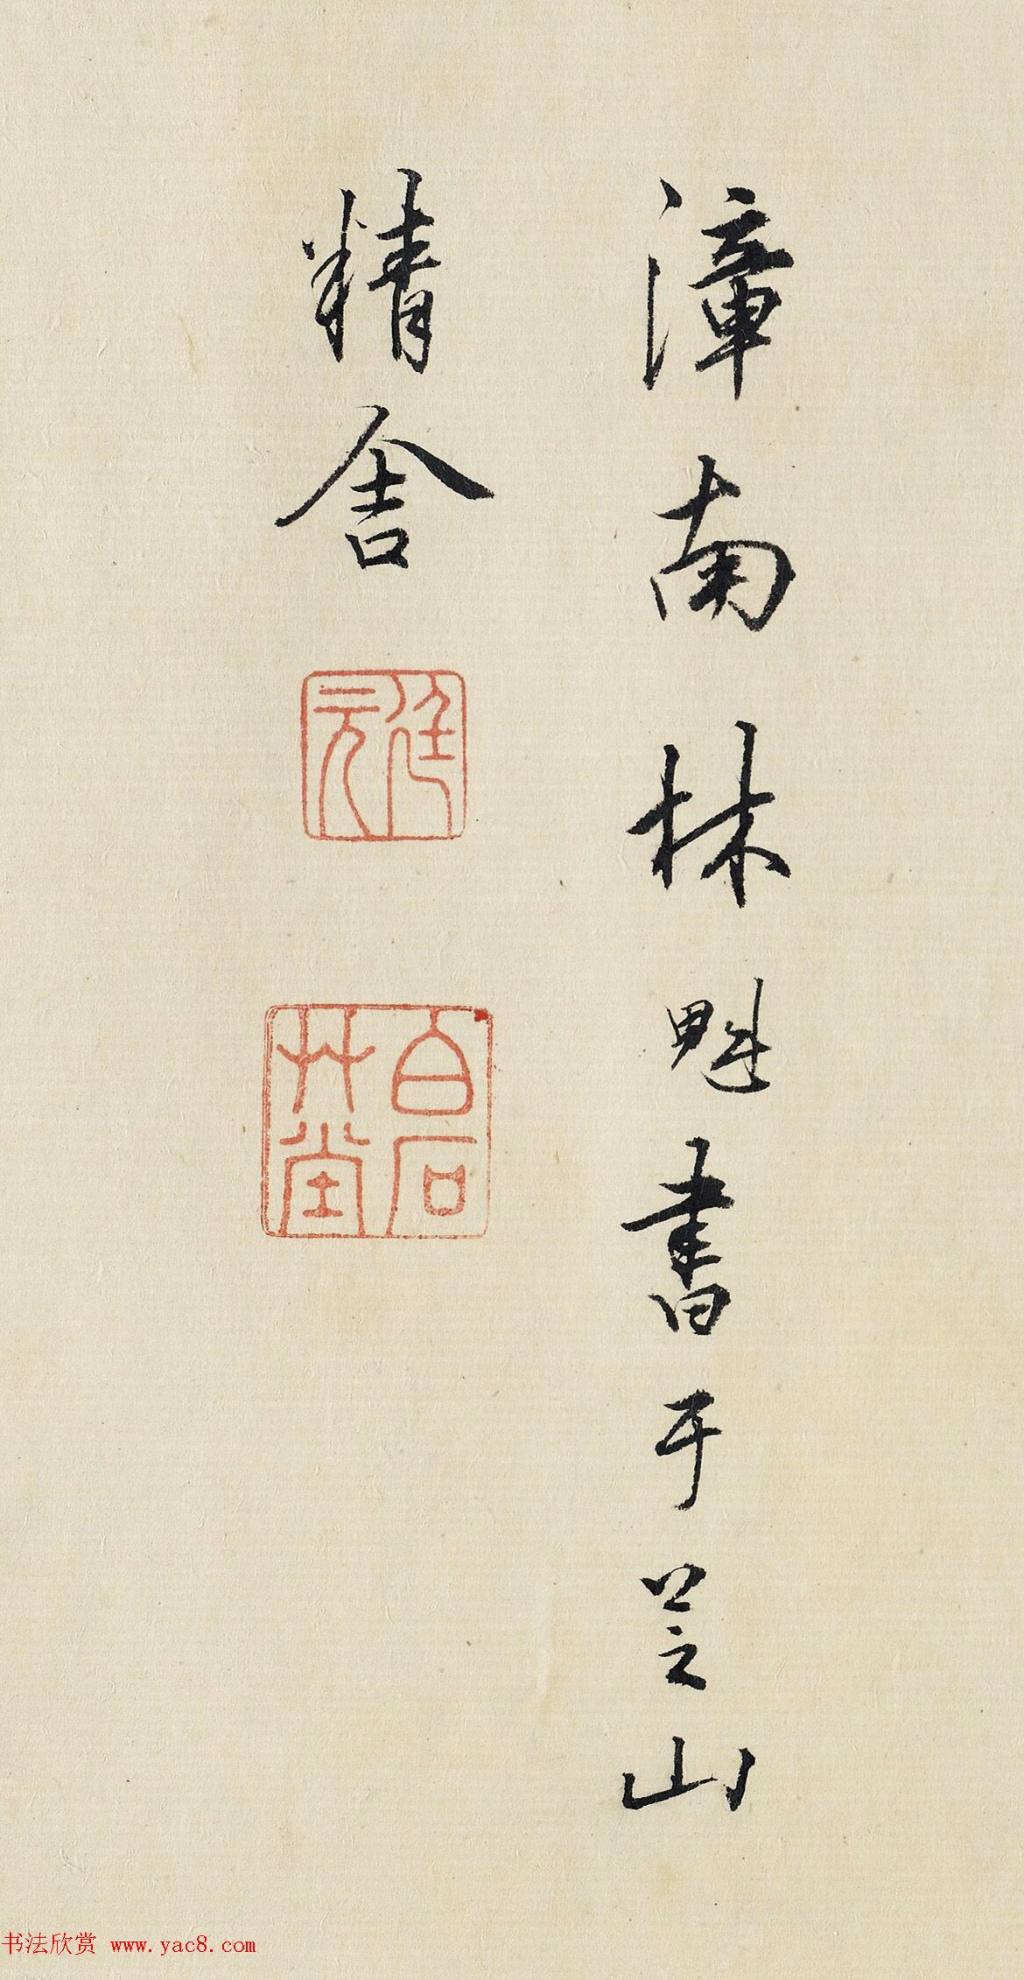 漳南林魁書于芝山
精舍
廷元
白石草堂
书法欣赏 www.yac8.com